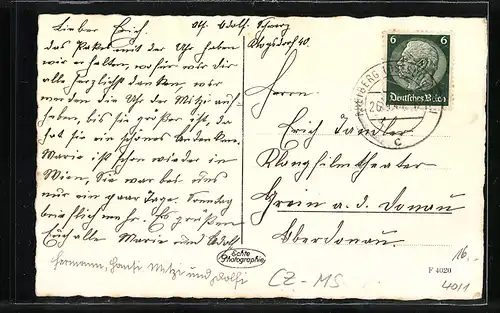 Lieber Erich.
das Paket mit der Uhr haben
wir erhalten, wofür wir dir
alle herzlichst danken, wir
werden die Uhr der Mitzi auf-
heben, bis sie größer ist, da
hat sie ein schönes Andenken.
Marie ist schon wieder in
Wien, Sie war bei uns
nur ein paar Tage. Sonntag
brieflich mehr. Es grüßen
Euch alle Marie und Adolf
Hermann, Hansi Mitzi und Adolfi
Abs. Adolf
40.
6
Deutsches Reich
26
c
Herrn
Erich Tandler
Klangfilmtheater
Grein a. d. Donau
Oberdonau
Echte
Photographie
CZ-MS
16.-
F 4020
4011